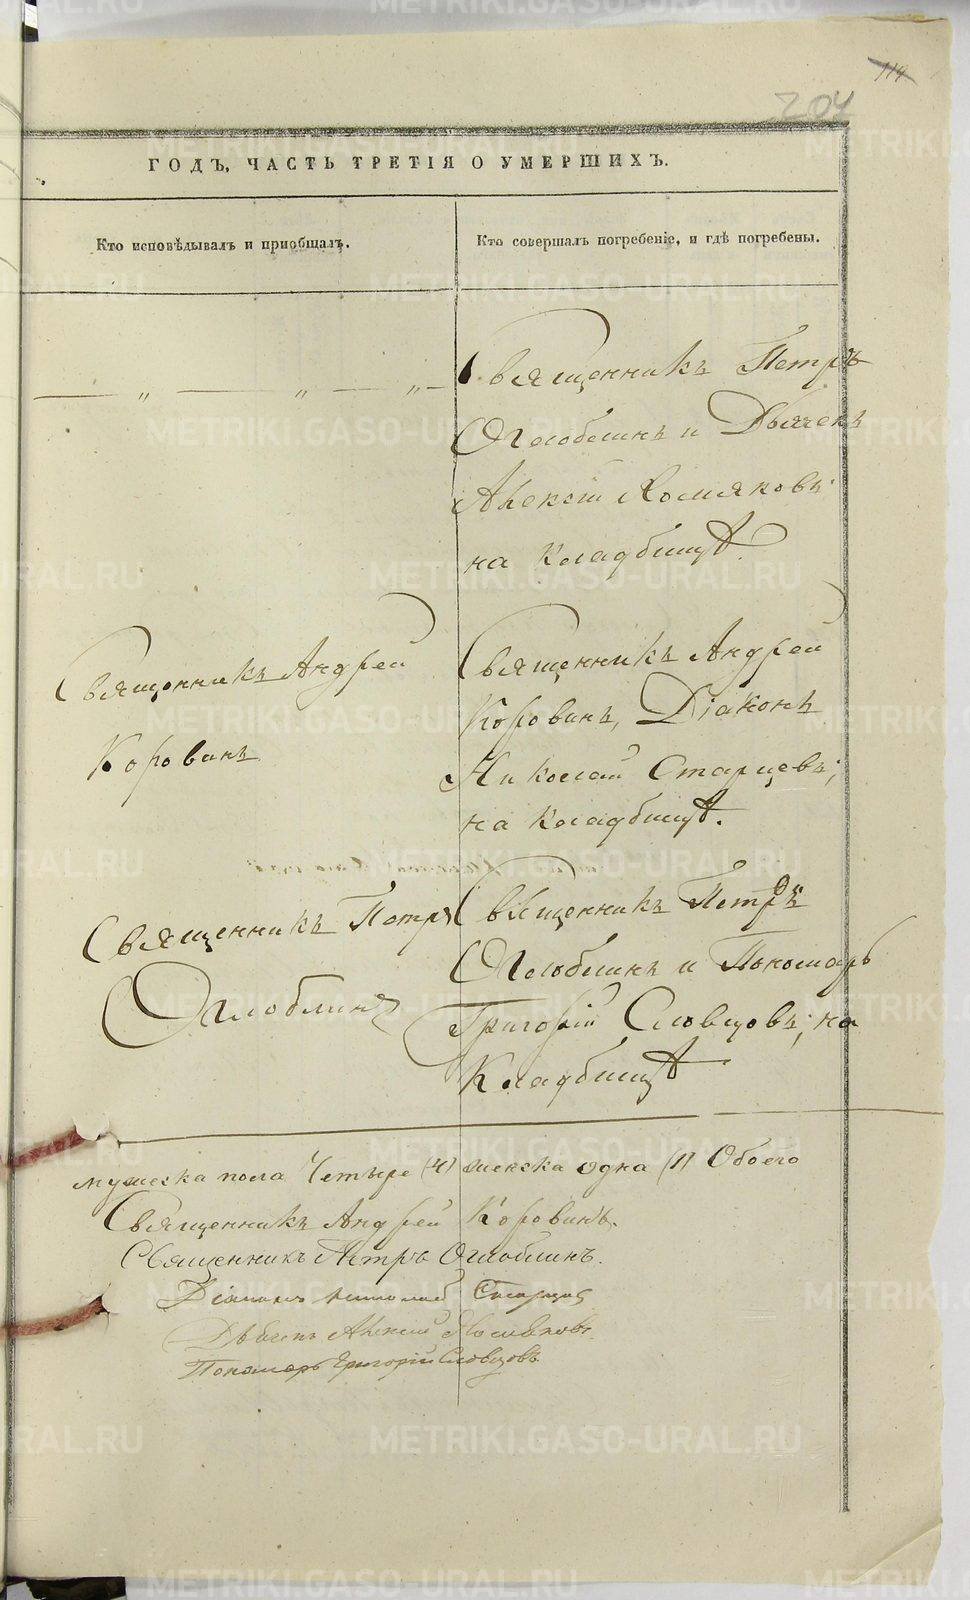 114
204
ГОДЪ, ЧАСТЬ ТРЕТІЯ О УМЕРШИХЪ.
Кто исповѣдывалъ и пріобщалъ.
Кто совершалъ погребеніе, и гдѣ погребены.
— „ — „ — „ —
Священникъ Петръ
Оглоблинъ и Дьячекъ
Алексѣй Хомяковъ
на кладбищѣ.
Священникъ Андрей
Коровинъ
Священникъ Андрей
Коровинъ, Діаконъ
Николай Старцевъ;
на кладбищѣ.
Священникъ Петръ
Оглоблинъ
Священникъ Петръ
Оглоблинъ и Пономарь
Григорій Словцовъ; на
Кладбищѣ
мужеска пола Четыре (4) женска одна (1) Обоего
Священникъ Андрей Коровинъ.
Священникъ Петръ Оглоблинъ.
Діаконъ Николай Старцев
Дьячекъ Алексей Хомяковъ
Пономарь Григорій Словцовъ
METRIKI.GASO-URAL.RU